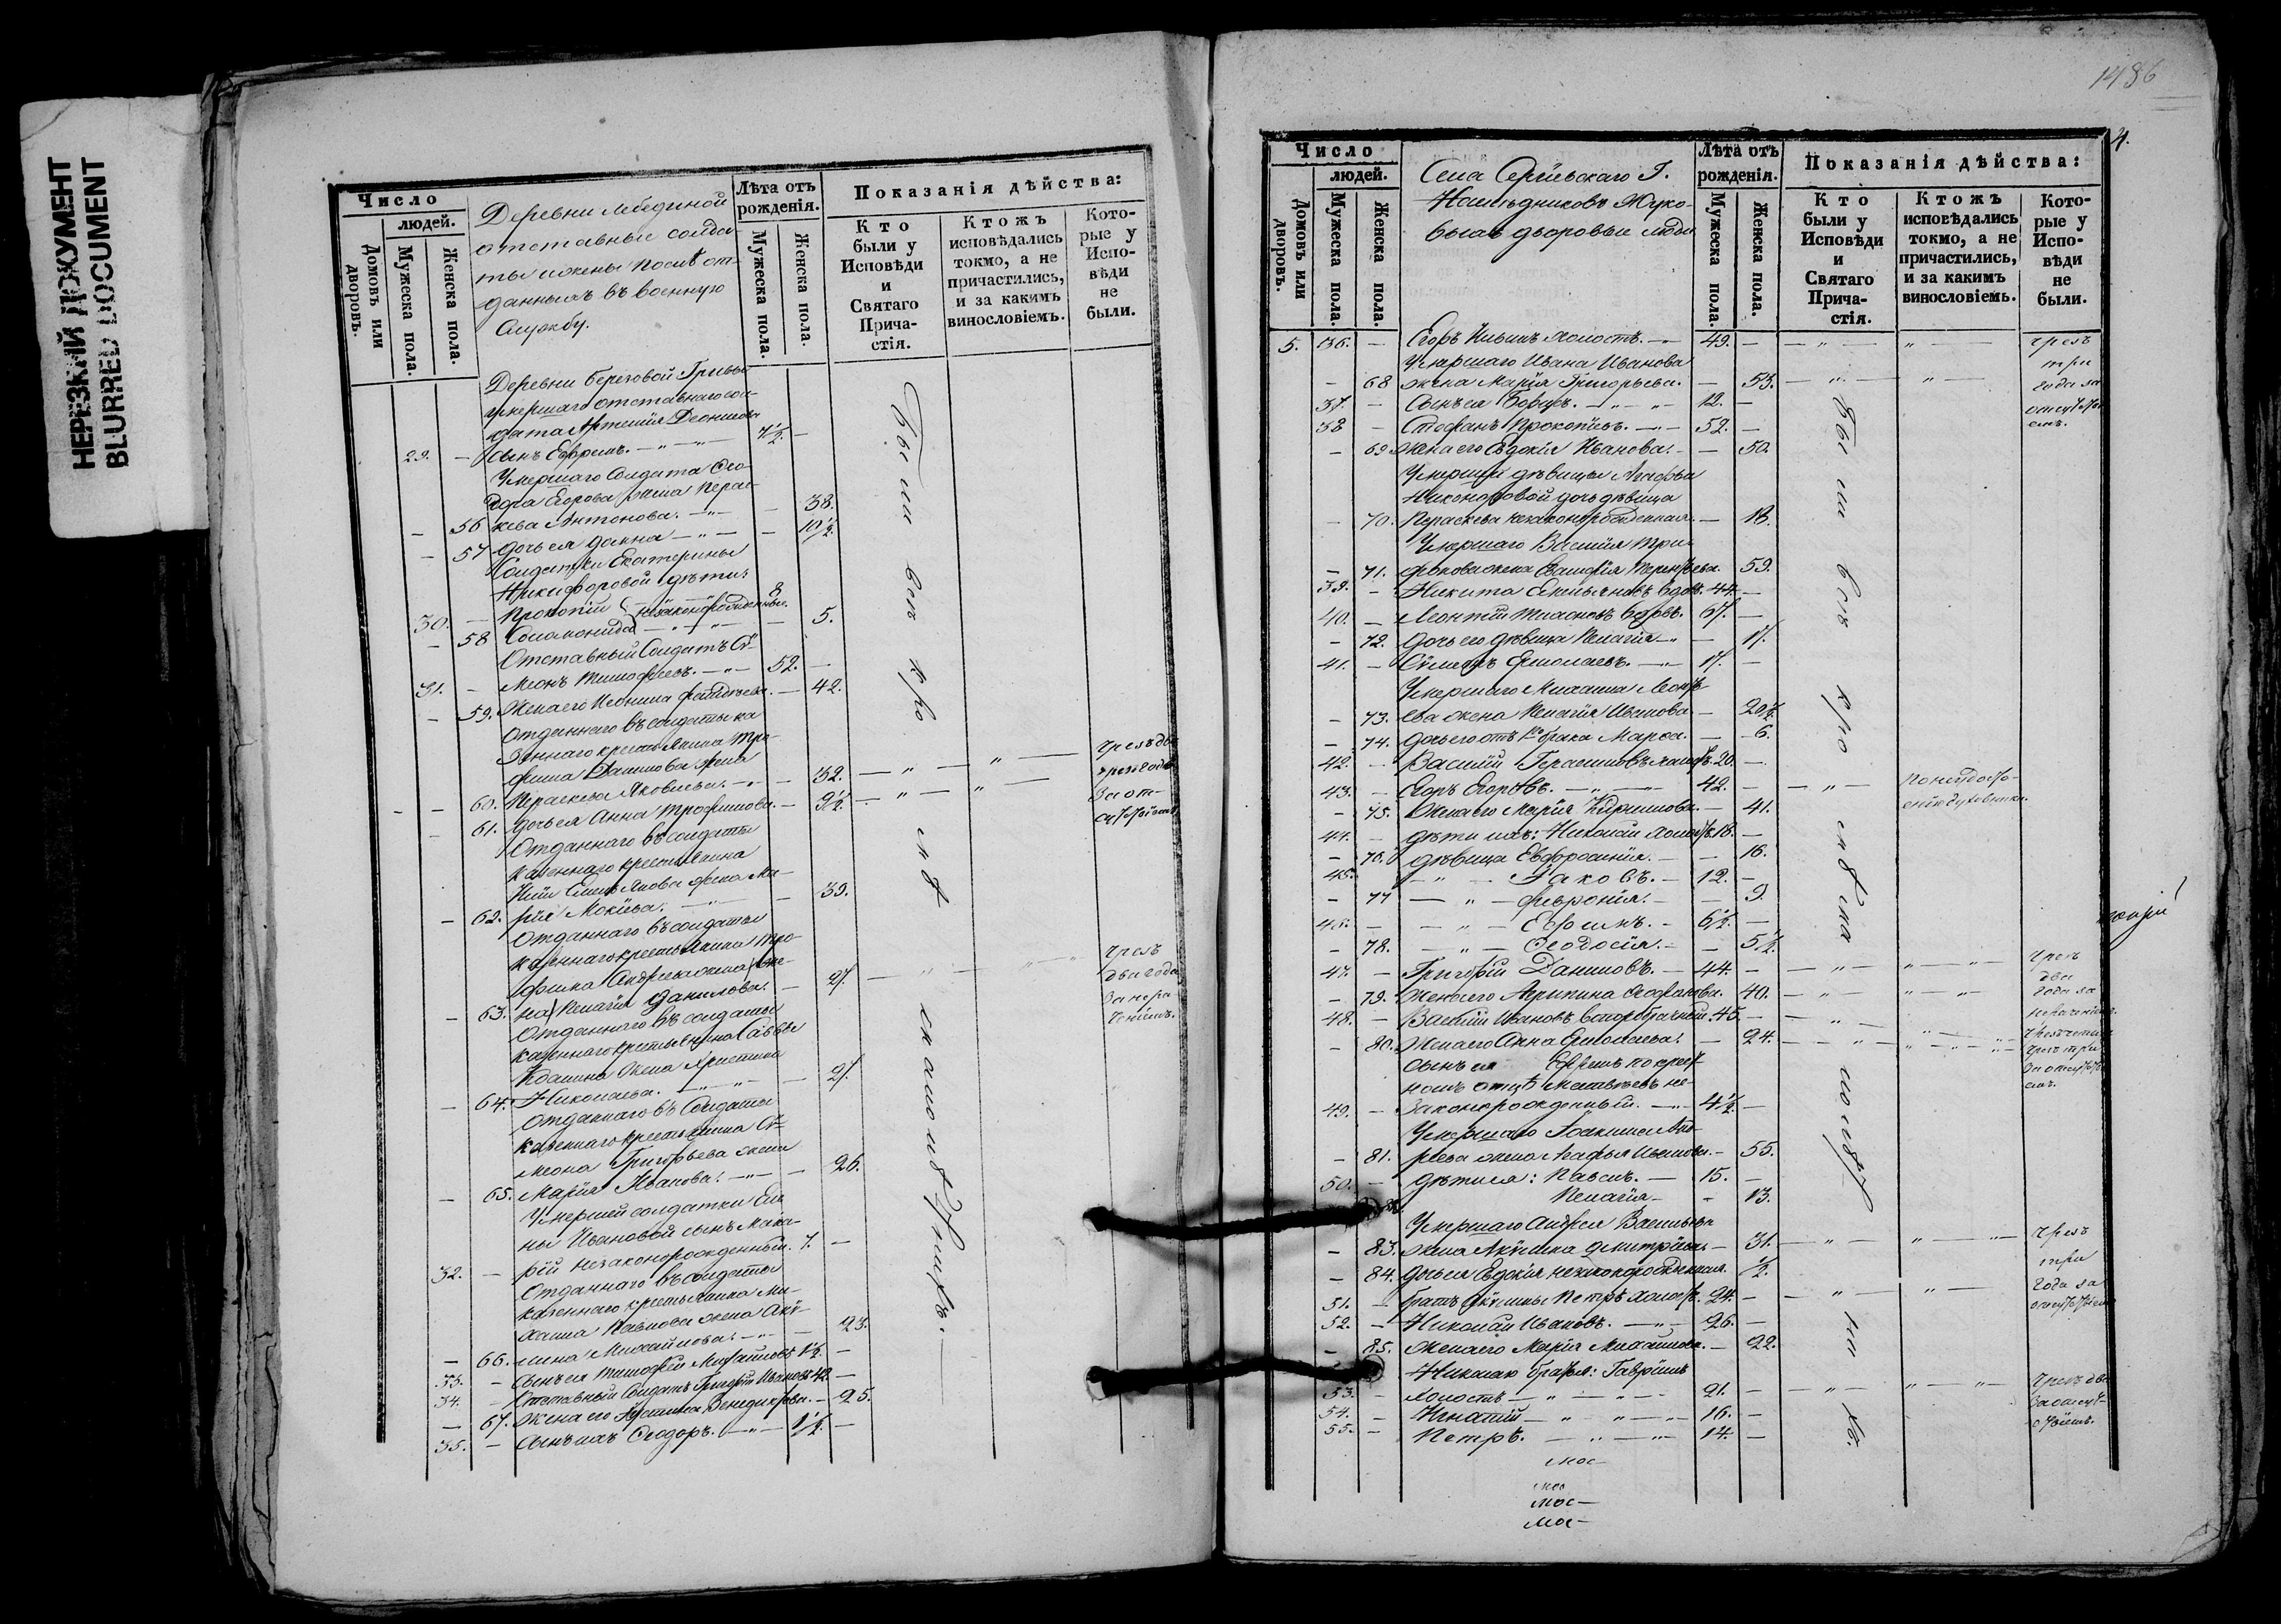 НЕРЕЗКИЙ ДОКУМЕНТ
BLURRED DOCUMENT
Число
людей.
Домовъ или дворовъ.
Мужеска пола.
Женска пола.
Деревни Лебединой
отставные солда-
ты и жены после от-
данныхъ въ военную
службу.
Лѣта отъ рожденія.
Мужеска пола.
Женска пола.
Показанія дѣйства:
Кто были у Исповѣди и Святаго Причастія.
Ктожъ исповѣдались токмо, а не причастились, и за какимъ винословіемъ.
Которые у Исповѣди не были.
Деревни Береговой Гривы
умершаго отставнаго сол-
дата Артемія Деонисова
29. — сынъ Ефремъ. — 7½ —
Умершаго Солдата Ѳео-
дора Егорова жена Перас-
— 56 кева Антонова. — 38.
— 57 дочь ея Домна — 10½
Солдатки Екатерины
Никифоровой дѣти:
30. — Прокопій незаконорожденные. 8
— 58 Соломонида — 5.
Отставный Солдатъ Сѵ-
31. — меонъ Тимофеевъ. — 52. —
— 59. Жена его Неонила Фаддѣева. — 42.
Отданнаго въ солдаты ка
зеннаго крестьянина Тро-
фима Данилова жена
— 60. Перасkева Яковлева. — 32.
— 61. дочь ея Анна Трофимова. — 9½
Чрезъ два
за от-
Отданнаго въ солдаты
казеннаго крестьянина
Емельянова жена Ма-
— 62. рія Мокіева. — 39.
Отданнаго въ солдаты
казеннаго крестьянина Тро-
фима Андреева жена
— 63. Пелагія Данилова. — 27.
Чрезъ
два года
за нера-
ченіемъ.
Отданнаго въ солдаты
казеннаго крестьянина Саввы
жена Христина
— 64. Николаева. — 27.
Отданнаго въ Солдаты
казеннаго крестьянина Сѵ-
меона Григорьева жена
— 65. Марія Иванова. — 26.
Умершей солдатки Еле
ны Ивановой сынъ Мака-
32. — рій незаконорожденный. 7. —
Отданнаго въ солдаты
казеннаго крестьянина Ми-
хаила Павлова жена Аку-
— 66. лина Михайлова. — 23.
33. — сынъ ея Тимофей Михайловъ 1½. —
34. — Отставный Солдатъ Григорій Ивановъ 42. —
— 67. жена его Устинья Венедиктова. — 25.
35. — сынъ ихъ Ѳеодоръ. — 1½. —
Были вси кро
мѣ
1486
4.
Число
людей.
Домовъ или дворовъ.
Мужеска пола.
Женска пола.
Села Сергіевскаго Г.
Наслѣдниковъ Жуко-
выхъ дворовые люди
Лѣта отъ рожденія.
Мужеска пола.
Женска пола.
Показанія дѣйства:
Кто были у Исповѣди и Святаго Причастія.
Ктожъ исповѣдались токмо, а не причастились, и за какимъ винословіемъ.
Которые у Исповѣди не были.
5. 36. — Егоръ Ильинъ холостъ. — 49. —
чрезъ
три
года за
отсутстві
емъ.
Умершаго Ивана Иванова
— 68 жена Марія Григорьева. — 53.
37. — Сынъ ея Борисъ. — 12. —
38 — Стефанъ Прокопіевъ. — 52. —
— 69 жена его Евдокія Иванова. — 50.
Умершей дѣвицы Агафьи
Никоноровой дочь дѣвица
— 70. Пераскева незаконорожденная. — 18.
Умершаго Василія Три-
— 71. фонова жена Терентьева. 59.
39. — Никита Емельяновъ вдовъ. 44. —
40. — Леонтій вдовъ. 67. —
— 72. дочь его дѣвица Пелагія — 17.
41. — Сѵмеонъ Ермолаевъ. — 17. —
Умершаго Михаила Леонть
— 73. ева жена Пелагія Иванова — 20½.
— 74. дочь его отъ 1го брака Марѳа. — 6.
42. — Василій Герасимовъ холостъ. 20. —
43. — Егоръ Егоровъ. — 42. —
по недосто-
— 75. Жена его Марія — 41.
44. — дѣти ихъ: Николай холостъ 18. —
— 76. дѣвица Евфросинія. — 16.
45. — Іаковъ. — 12. —
— 77 — Февронія. — 9.
46. — Ефимъ. — 6½. —
— 78. — Ѳеодосія. — 5½.
47. — Григорій Даниловъ. — 44. —
— 79. Жена его Агрипина Ѳеофанова. 40.
Чрезъ
два
года за
нераченіемъ.
48. — Василій Ивановъ второбрачный. 45. —
— 80. Жена его Анна Ермолаева. — 24.
чрезъ три
за отсутстві
емъ.
сынъ ея Ефремъ по крест-
номъ отцѣ Матвѣевъ не-
49. — законорожденный. — 4½. —
Умершаго Іоакима Анд-
— 81. реева жена Агафья Иванова. — 55.
50. — дѣти ея: Павелъ. — 15. —
82. Пелагія — 13.
Умершаго Андрея Васильева
— 83. жена Акулина Димитріева. — 31.
— 84. дочь ея Евдокія незаконорожденная. ½.
51. — братъ Акулины Петръ холостъ. 24. —
чрезъ
три
года за
отсутствіемъ
52. — Николай Ивановъ. — 26. —
— 85. Жена его Марія Михайлова. — 22.
Николаю братья: Гавріилъ
53. — холостъ — 21. —
54. — Игнатій — 16. —
55. — Петръ. — 14. —
Чрезъ два
за отсут-
ствіемъ.
Были вси кро
мѣ
мос-
мос-
мос-